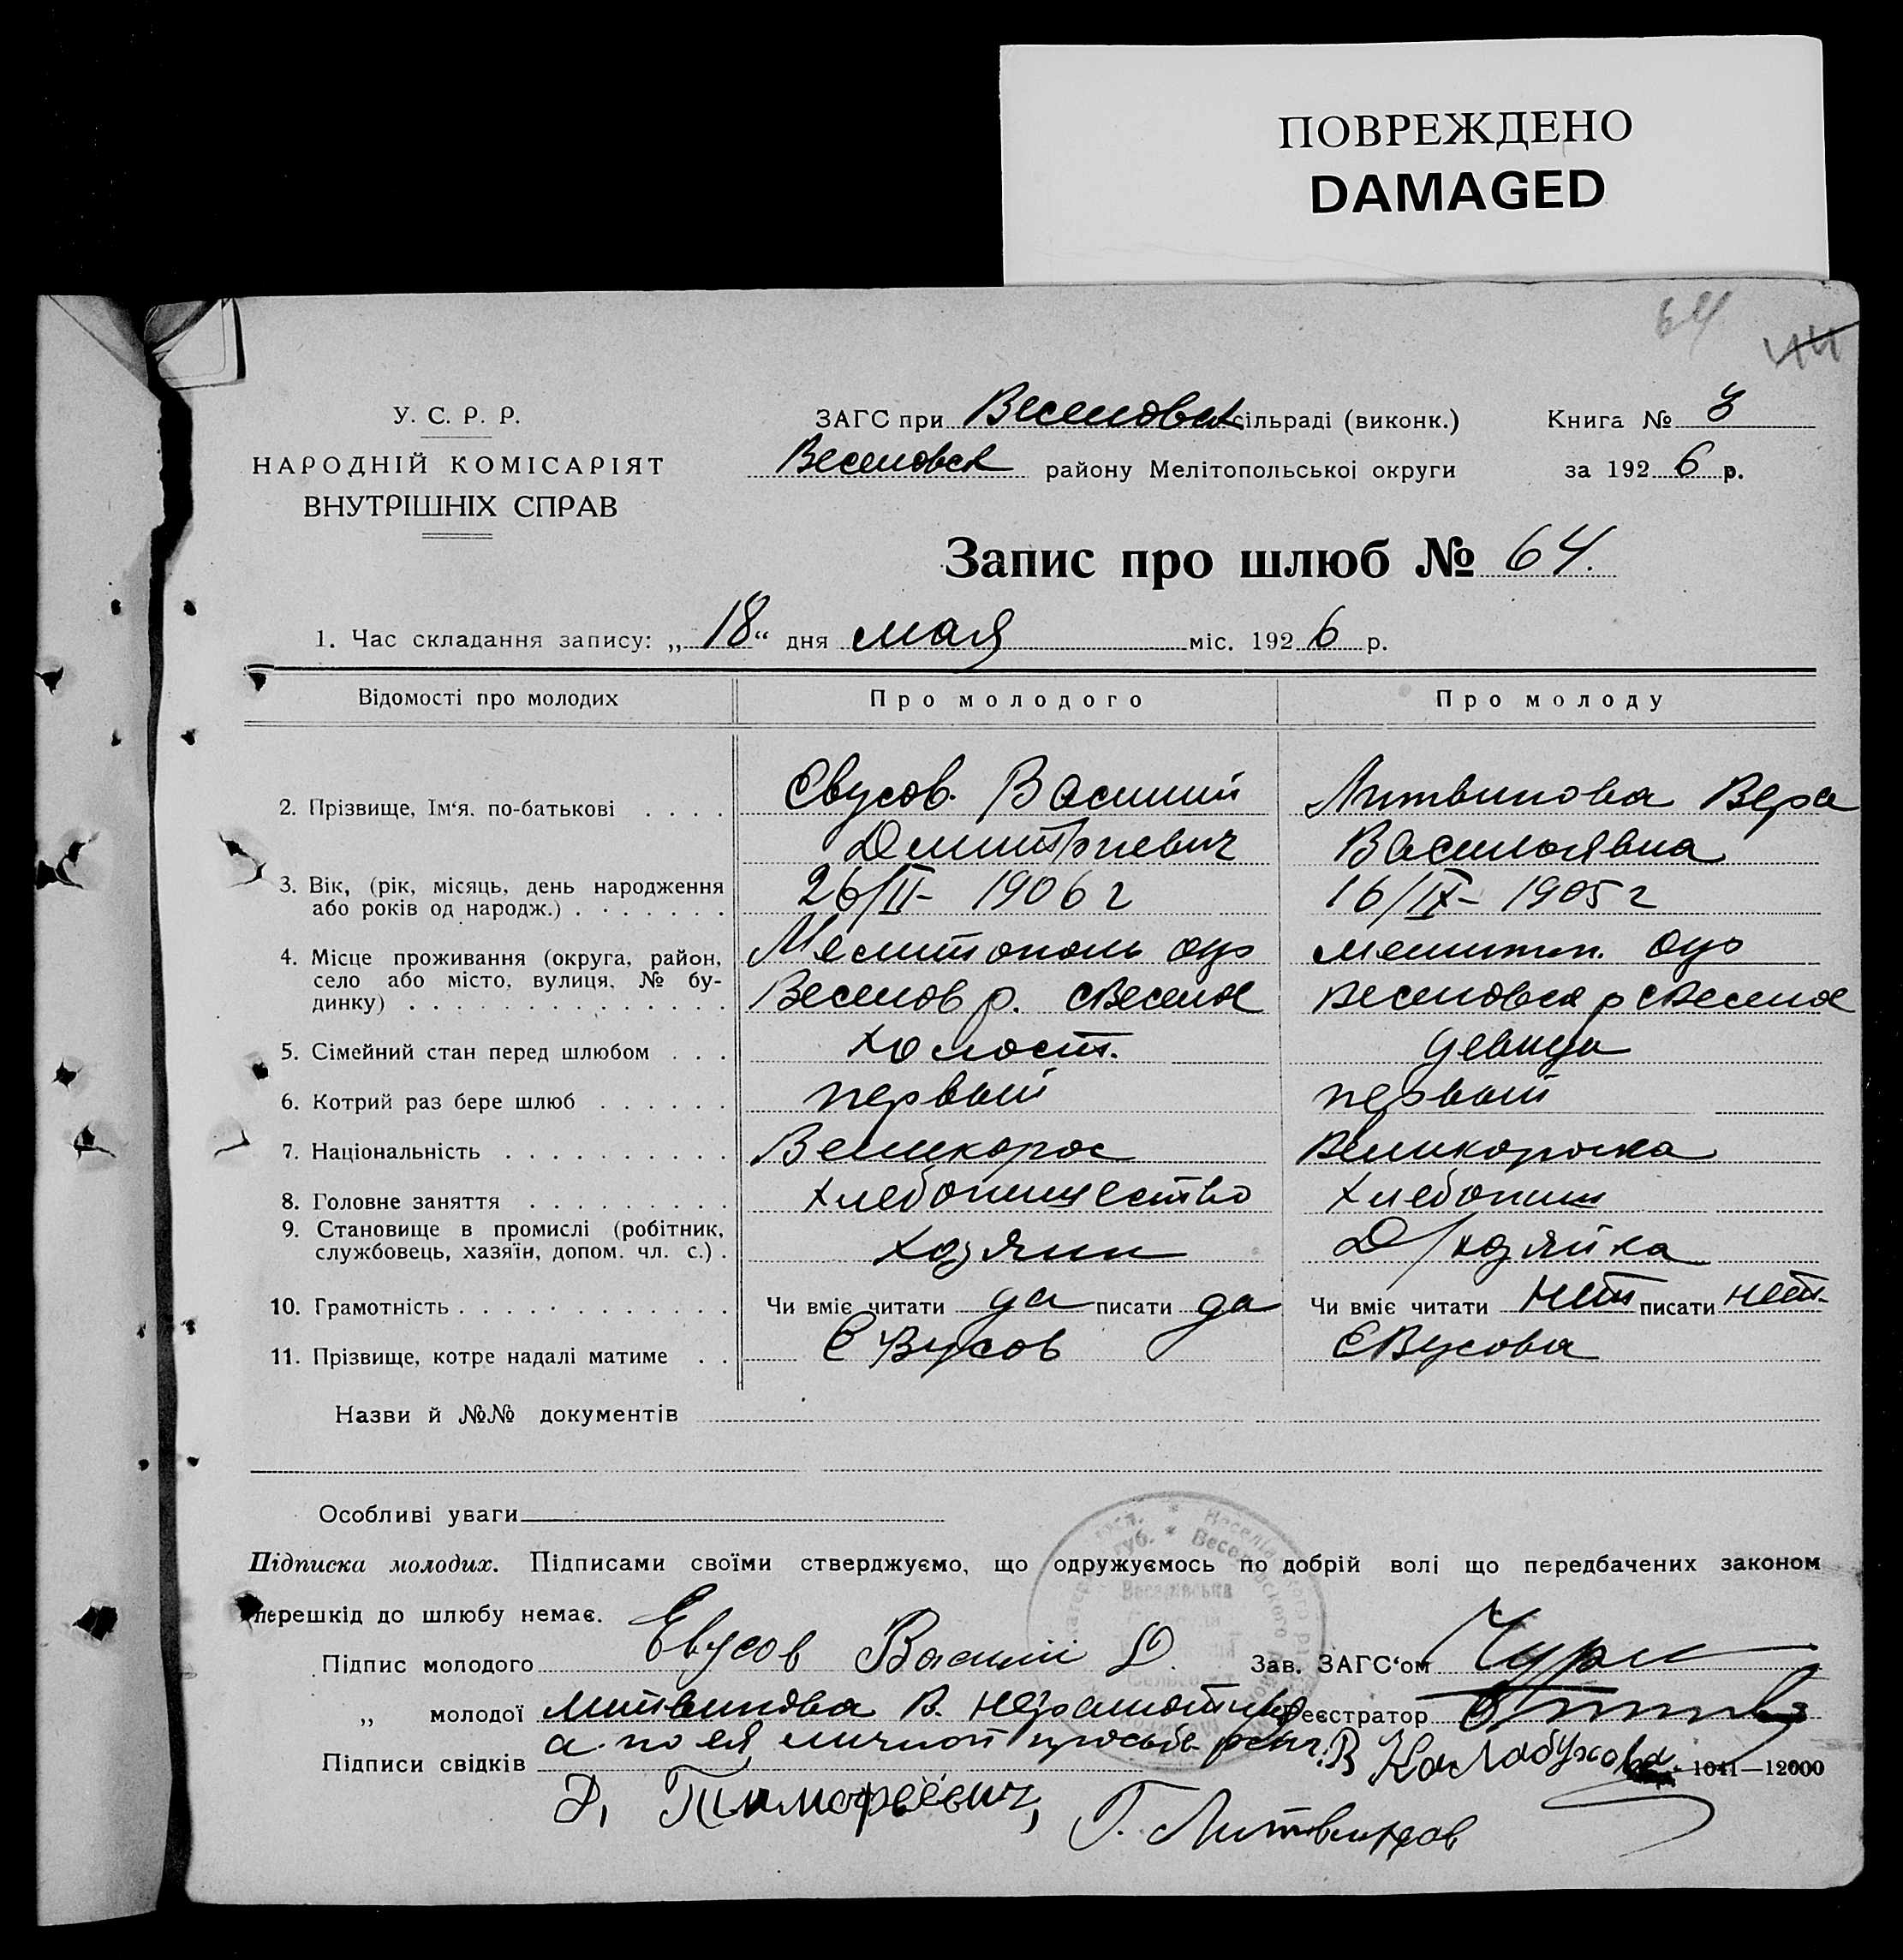 ПОВРЕЖДЕНО
DAMAGED
64
44
У. С. Р. Р.
НАРОДНІЙ КОМІСАРІЯТ
ВНУТРІШНІХ СПРАВ
ЗАГС при Веселовск сільраді (виконк.) Книга № 3
Веселовск району Мелітопольської округи за 1926 р.
Запис про шлюб № 64.
1. Час складання запису: „18“ дня мая міс. 1926 р.
Відомості про молодих Про молодого Про молоду
2. Прізвище, Ім‘я. по-батькові . . . . Євусов. Василий Литвинова Вера
Дмитриевич Васильявна
3. Вік, (рік, місяць, день народження 26/II - 1906 г 16/IX - 1905 г
або років од народж.) . . . . . . .
4. Місце проживання (округа, район, Мелитополь окр мелитоп. окр
село або місто, вулиця, № бу- Веселов р. с Веселое Веселовск р с Веселое
динку) . . . . . . . . . . . . . .
5. Сімейний стан перед шлюбом . . . холост. девица
6. Котрий раз бере шлюб . . . . . . первый первый
7. Національність . . . . . . . . . . Великорос Великороска
8. Головне заняття . . . . . . . . . хлебопашество хлебопаш
9. Становище в промислі (робітник,
службовець, хазяїн, допом. чл. с.) . хозяин Д/хозяйка
10. Грамотність . . . . . . . . . . . . Чи вміє читати да писати да Чи вміє читати нет писати нет.
11. Прізвище, котре надалі матиме . . Євусов Євусова
Назви й №№ документів
Особливі уваги
Підписка молодих. Підписами своїми стверджуємо, що одружуємось по добрій волі що передбачених законом
перешкід до шлюбу немає.
Підпис молодого Евусов Василий Д. Зав. ЗАГС‘ом
„ молодої Литвинова В. неграмотная Реєстратор
а по ея личной просьбе расп. В Калабухова 1041—12000
Підписи свідків
Д, Тимофеевич, Г. Литвинов